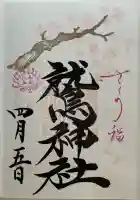 さくら福
鷲神社
四月五日